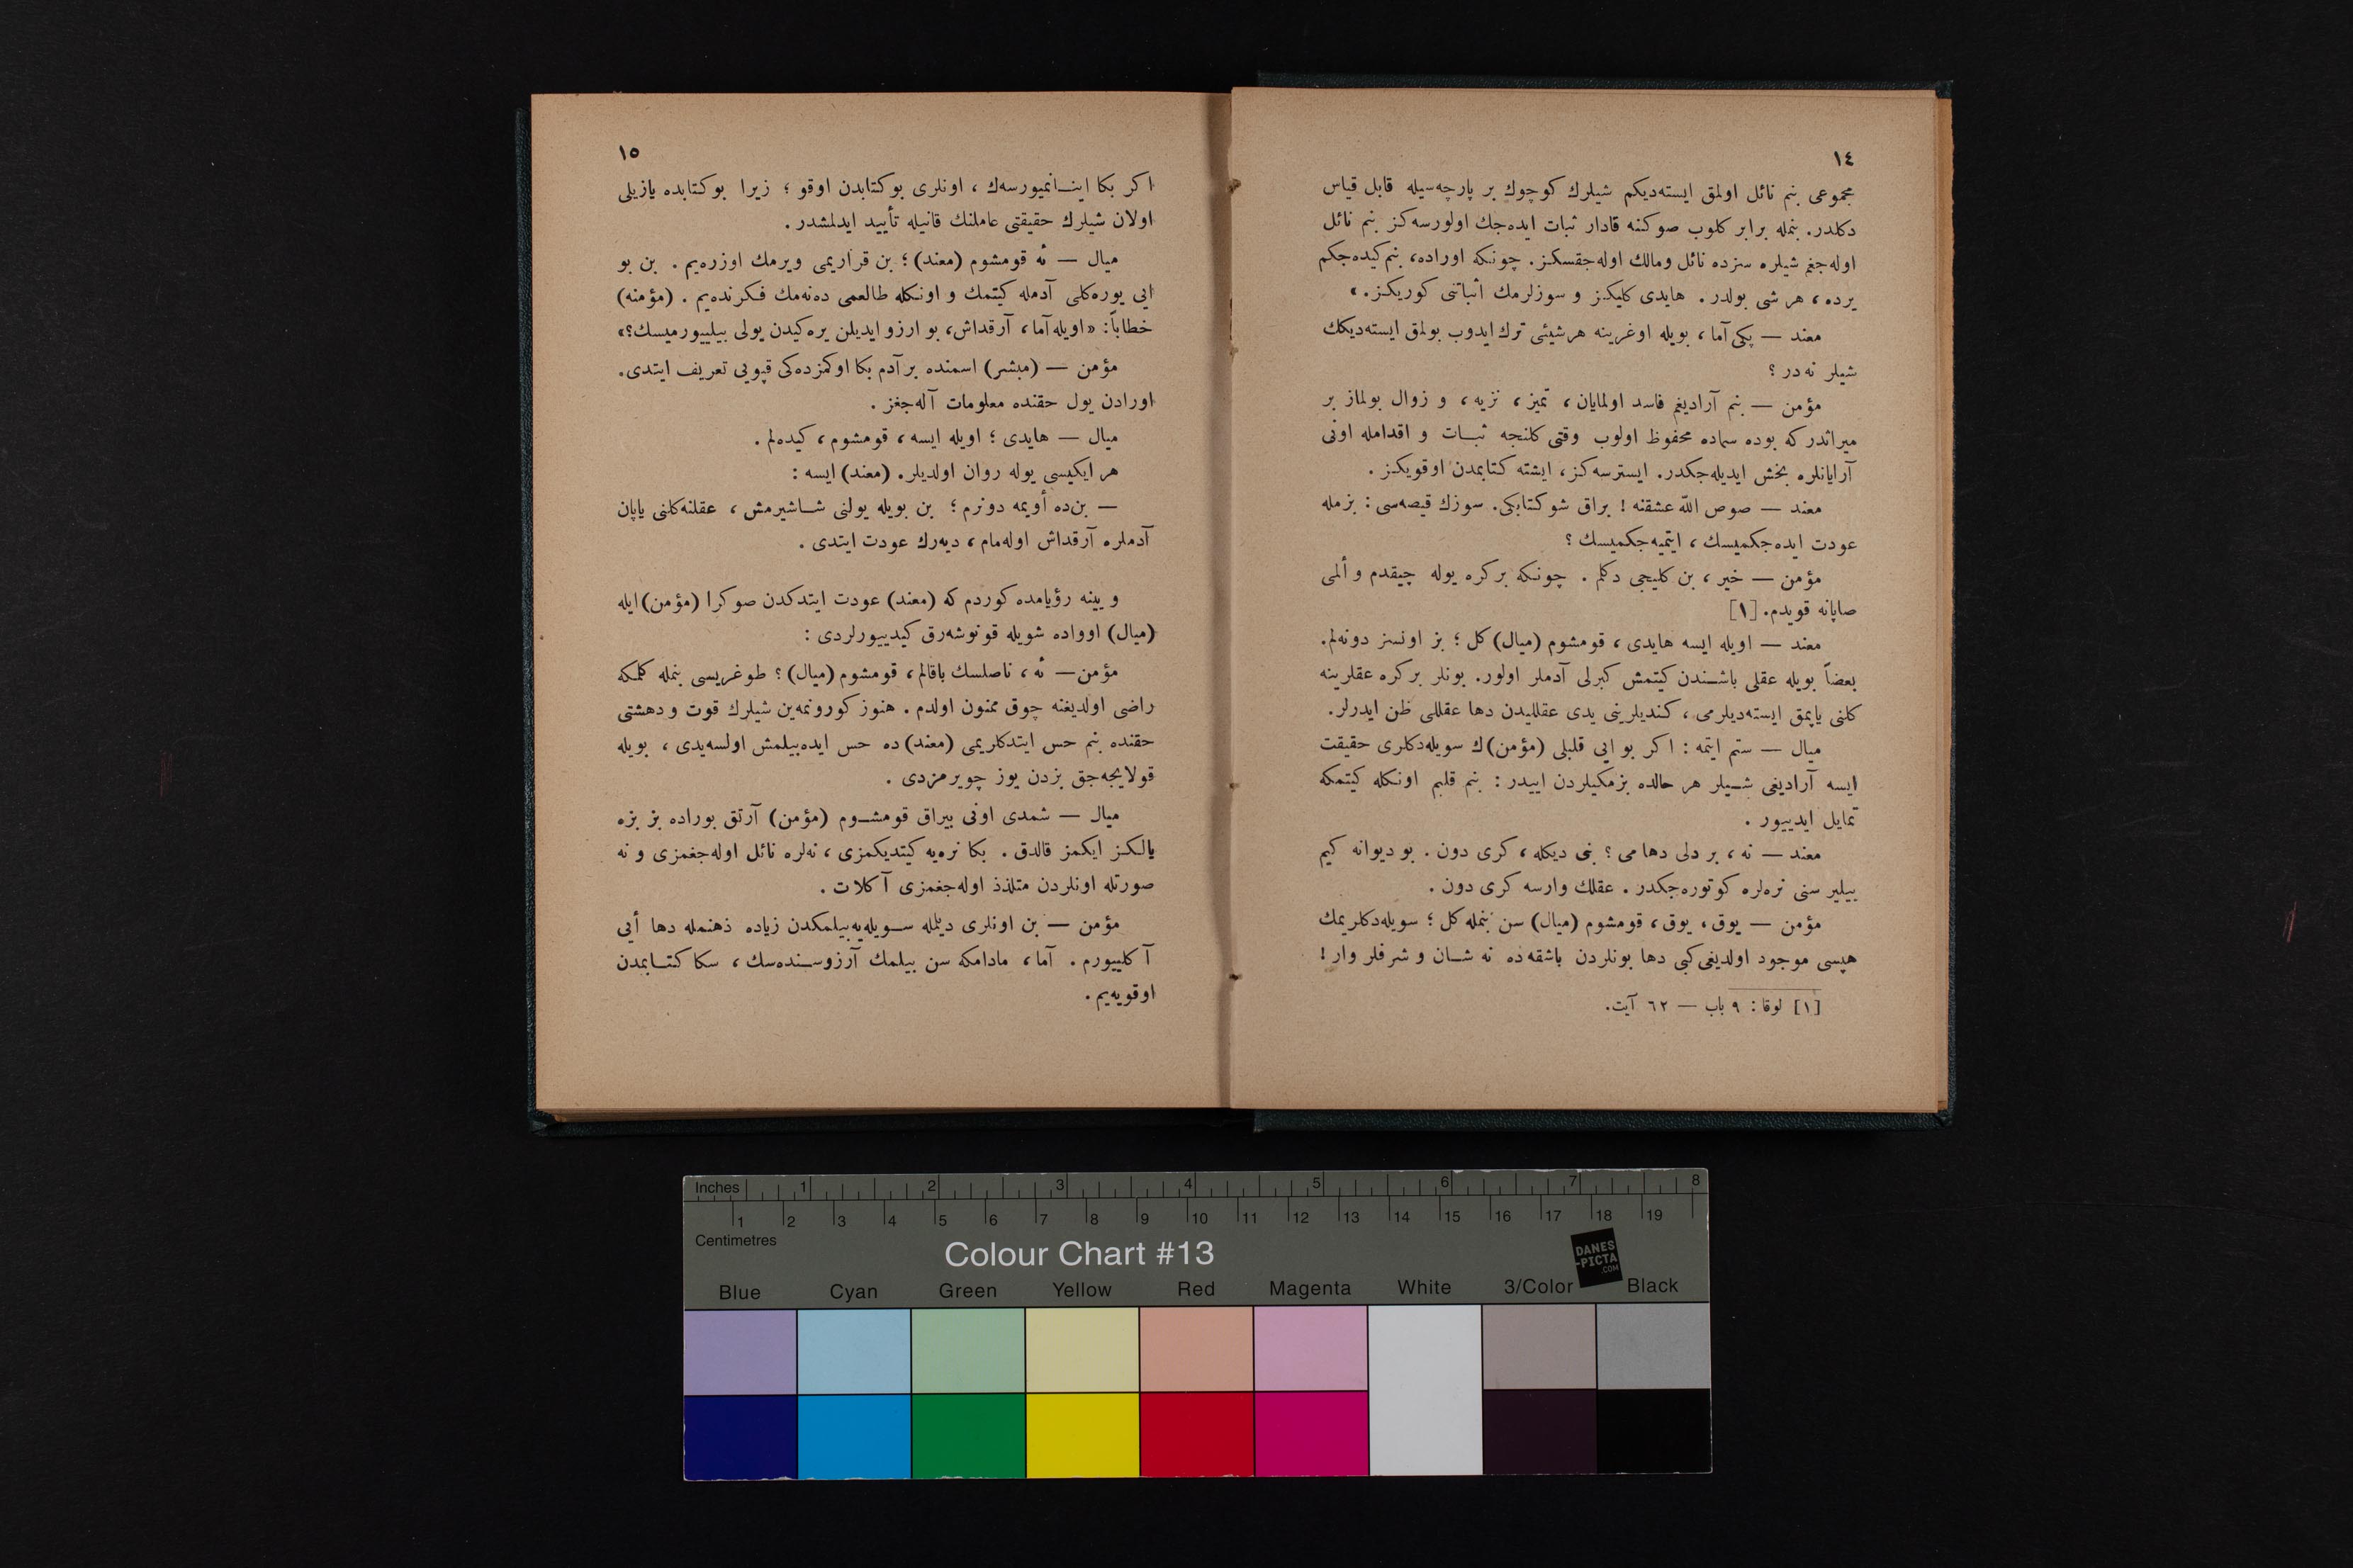 ١٤
مجموعی بنم نائل اولمق ایسته‌دیکم شیلرك کوچوك بر پارچه‌سیله قابل قیاس
دکلدر. بنمله برابر کلوب صوکنه قادار ثبات ایده‌جك اولورسه‌کز بنم نائل
اوله‌جغم شیلره سزده نائل ومالك اوله‌جقسکز. چونکه اوراده، بنم کیده‌جکم
یرده، هر شی بولدر. هایدی کلیکز و سوزلرمك اثباتنی کوریکز.»
معند — پکی آما، بویله اوغرینه هرشیئی ترك ایدوب بولمق ایسته‌دیکك
شیلر نه‌در ؟
مؤمن — بنم آرادیغم فاسد اولمایان، تمیز، نزیه، و زوال بولماز بر
میراثدر که بوده سماده محفوظ اولوب وقتی کلنجه ثبات و اقدامله اونی
آرایانلره بخش ایدیله‌جکدر. ایسترسه‌کز، ایشته کتابمدن اوقویکز.
معند — صوص اللّه عشقنه ! براق شو کتابکی. سوزك قیصه‌سی : بزمله
عودت ایده‌جکمیسك، ایتمیه‌جکمیسك ؟
مؤمن — خیر، بن کلیجی دکلم. چونکه برکره یوله چیقدم و ألمی
صاپانه قویدم. [١]
معند — اویله ایسه هایدی، قومشوم (میال) کل ؛ بز اونسز دونه‌لم.
بعضاً بویله عقلی باشندن کیتمش کبرلی آدملر اولور. بونلر برکره عقلرینه
کلنی یاپمق ایسته‌دیلرمی، کندیلرینی یدی عقللیدن دها عقللی ظن ایدرلر.
میال — ستم ایتمه : اکر بو ایی قلبلی (مؤمن)ك سویله‌دکلری حقیقت
ایسه آرادیغی شیلر هر حالده بزمکیلردن اییدر : بنم قلبم اونکله کیتمکه
تمایل ایدییور.
معند — نه، بر دلی دهامی ؟ بنی دیکله، کری دون. بو دیوانه کیم
بیلیر سنی نره‌لره کوتوره‌جکدر. عقلك وارسه کری دون.
مؤمن — یوق، یوق، قومشوم (میال) سن بنمله کل ؛ سویله‌دکلریمك
هپسی موجود اولدیغی کبی دها بونلردن باشقه‌ده نه شان و شرفلر وار !
[١] لوقا : ٩ باب — ٦٢ آیت.
١٥
اکر بکا اینانمیورسه‌ك، اونلری بو کتابدن اوقو ؛ زیرا بو کتابده یازیلی
اولان شیلرك حقیقتی عاملنك قانیله تأیید ایدلمشدر.
میال — نه قومشوم (معند) ؛ بن قراریمی ویرمك اوزره‌یم. بن بو
ایی یوره‌کلی آدمله کیتمك و اونکله طالعمی ده‌نه‌مك فکرنده‌یم. (مؤمنه)
خطاباً : «اویله آما، آرقداش، بو ارزو ایدیلن یره کیدن یولی بیلییورمیسك؟»
مؤمن — (مبشر) اسمنده بر آدم بکا اوکمزده‌کی قپویی تعریف ایتدی.
اورادن یول حقنده معلومات آله‌جغز.
میال — هایدی ؛ اویله ایسه، قومشوم، کیده‌لم.
هر ایکیسی یوله روان اولدیلر. (معند) ایسه :
— بن‌ده أویمه دونرم ؛ بن بویله یولنی شاشیرمش، عقلنه‌کلنی یاپان
آدملره آرقداش اوله‌مام، دیه‌رك عودت ایتدی.
و یینه رؤیامده کوردم که (معند) عودت ایتدکدن صوکرا (مؤمن) ایله
(میال) اوواده شویله قونوشه‌رق کیدییورلردی :
مؤمن — نه، ناصلسك باقالم، قومشوم (میال) ؟ طوغریسی بنمله کلمکه
راضی اولدیغنه چوق ممنون اولدم. هنوز کورونمه‌ین شیلرك قوت و دهشتی
حقنده بنم حس ایتدکلریمی (معند)ده حس ایده‌بیلمش اولسه‌یدی، بویله
قولایجه‌جق بزدن یوز چویرمزدی.
میال — شمدی اونی بیراق قومشوم (مؤمن) آرتق بوراده بز بزه
یالکز ایکمز قالدق. بکا نره‌یه کیتدیکمزی، نه‌لره نائل اوله‌جغمزی و نه
صورتله اونلردن متلذذ اوله‌جغمزی آکلات.
مؤمن — بن اونلری دیلمله سویله‌یه‌بیلمکدن زیاده ذهنمله دها أیی
آکلییورم. آما، مادامکه سن بیلمك آرزوسنده‌سك، سکا کتابمدن
اوقویه‌یم.
Inches 1 2 3 4 5 6 7 8
1 2 3 4 5 6 7 8 9 10 11 12 13 14 15 16 17 18 19
Centimetres
Colour Chart #13
DANES
-PICTA
.COM
Blue Cyan Green Yellow Red Magenta White 3/Color Black